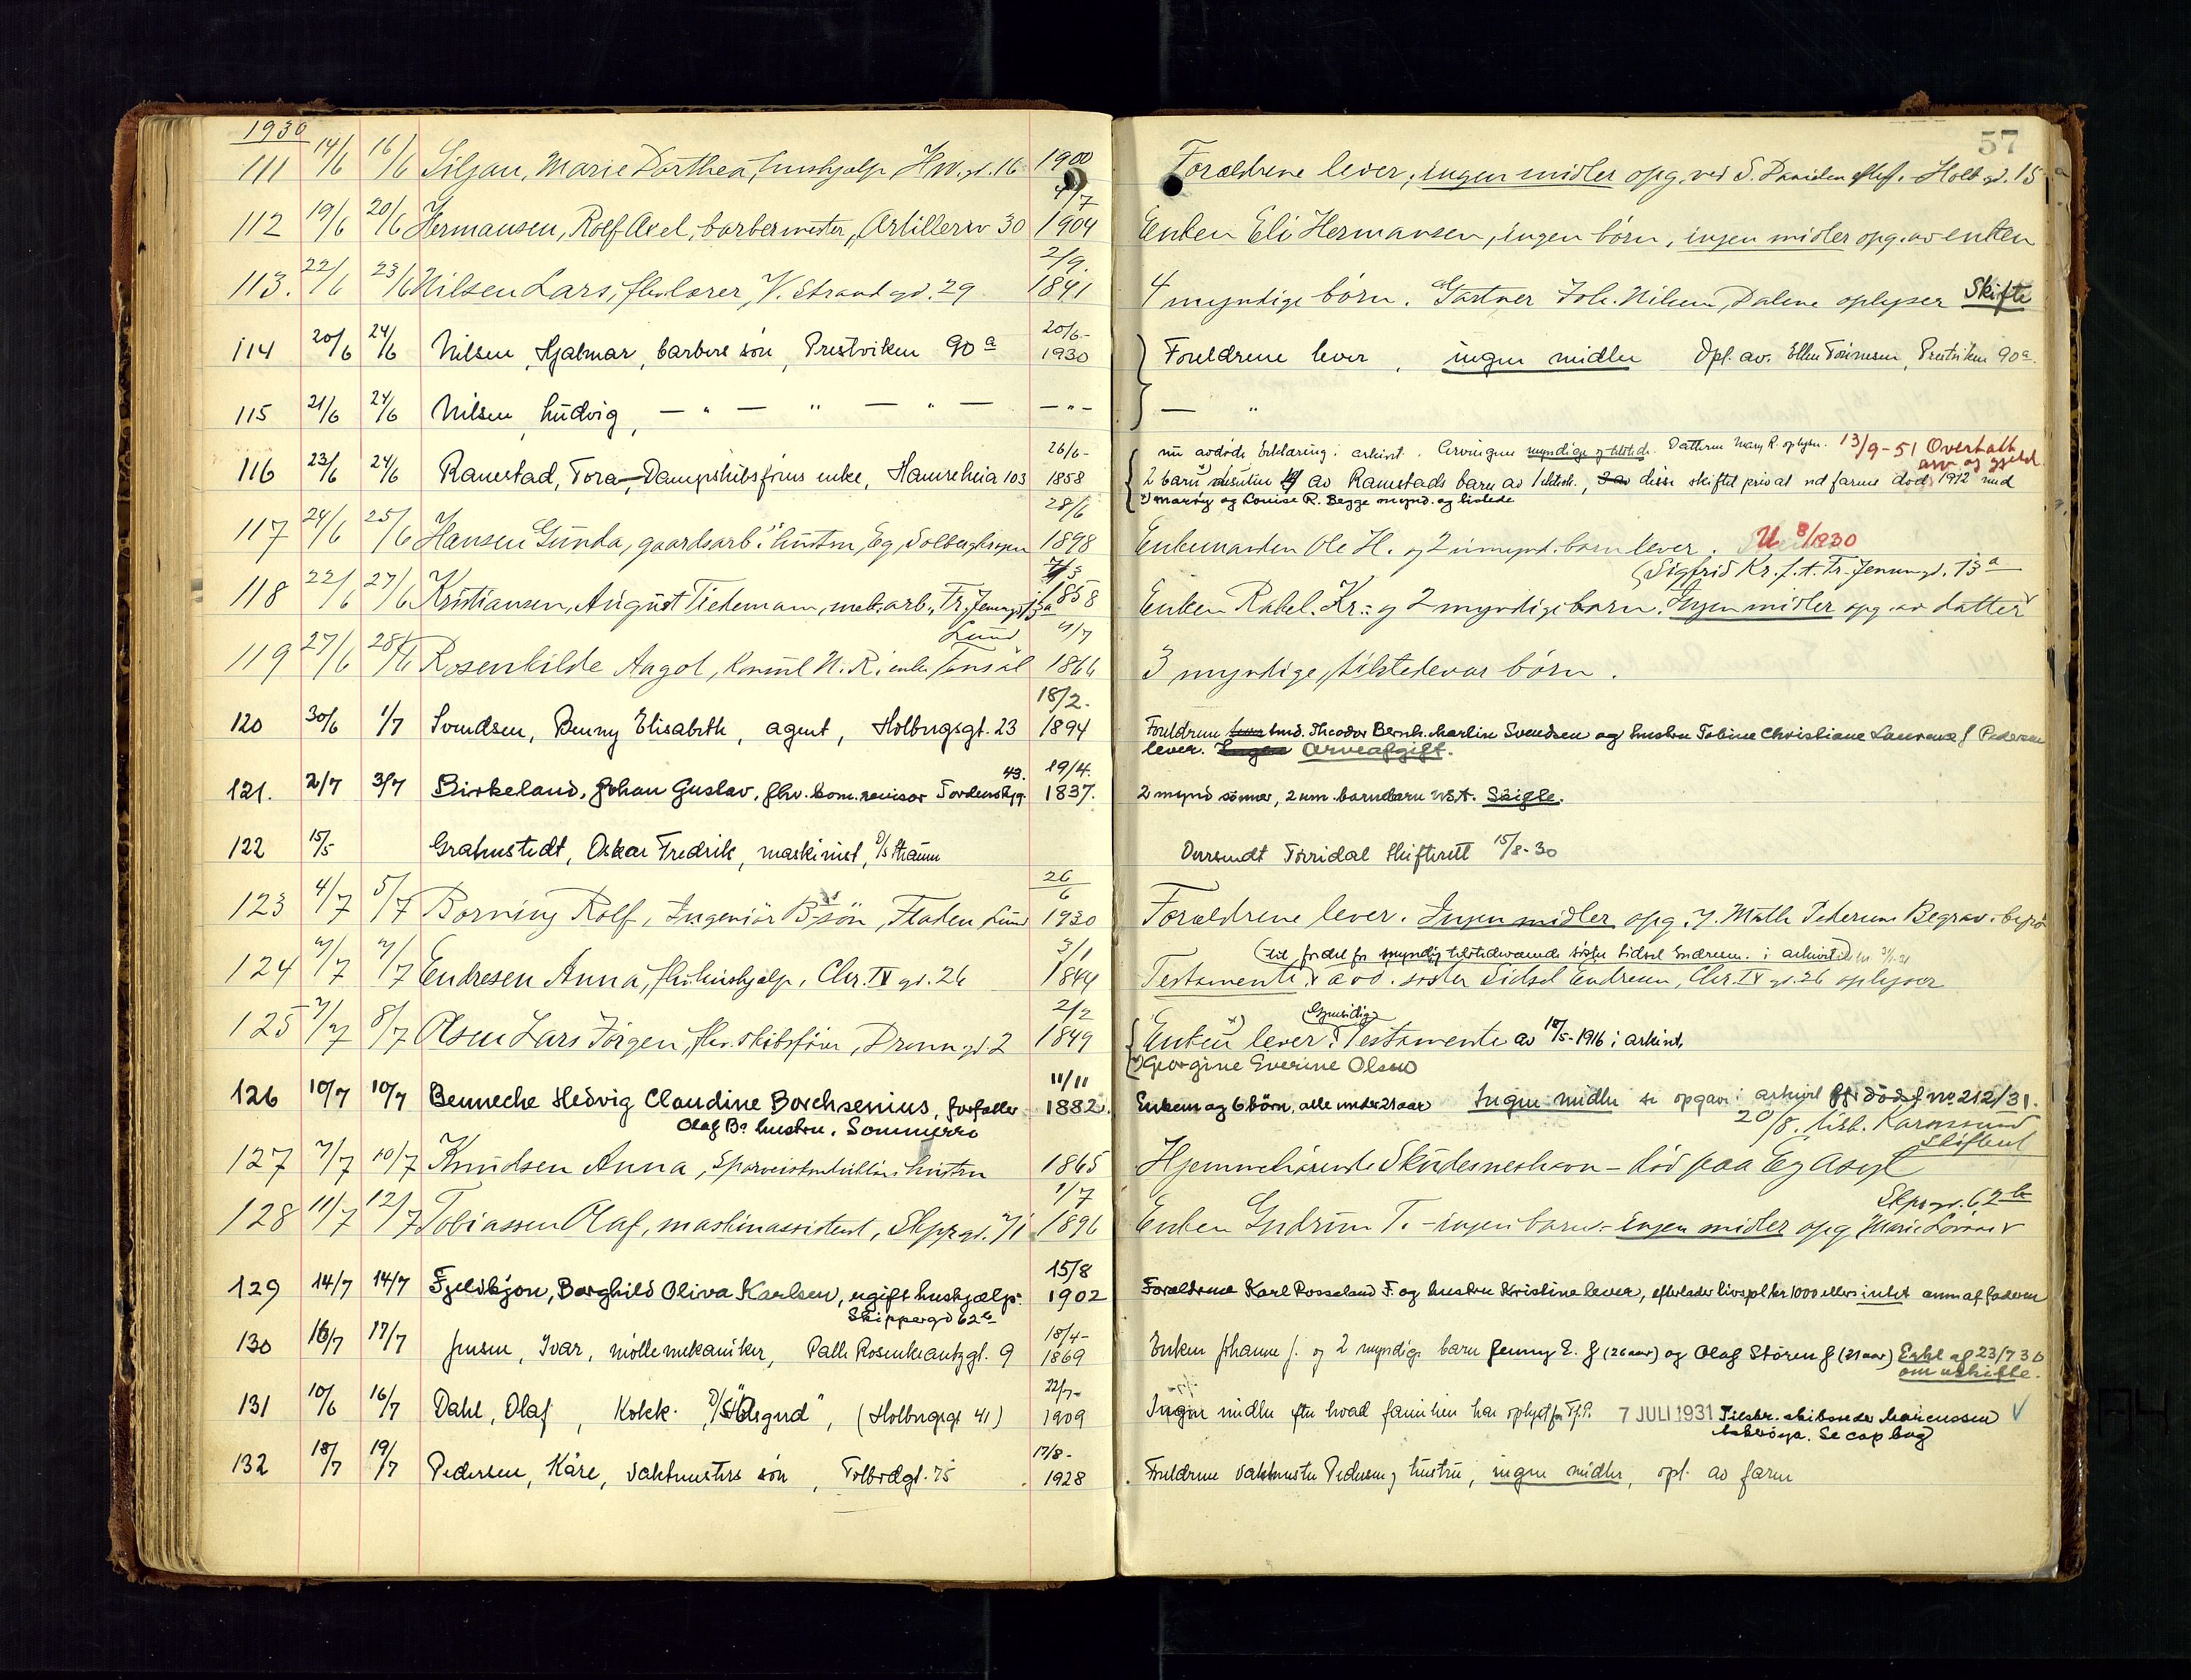 1930
57
111 14/6 16/6 Siljan, Marie Dorthea, hushjælp H.W.gt. 16 1900 Forældrene lever, ingen midler opg. ved S. Holb.gt. 15
4/7
112 19/6 20/6 Hermansen, Rolf Axel, barbermester, Artilleriv 30 1904 Enken Eli Hermansen, ingen börn, ingen midler opg. av enken
2/9.
113. 22/6 23/6 Nilsen Lars, fhv. lærer, V. Strand gt. 29 1841 4 myndige börn. Gartner Joh. Nilsen, Dalene oplyser Skifte
20/6-
114 20/6 24/6 Nilsen, Hjalmar, barbers sön, Prestviken 90a 1930 Foreldrene lever, ingen midler Opl. av. Ellen Tönnesen, Prestviken 90a.
115 21/6 24/6 Nilsen, Ludvig, — " — " — " — — " — — "
26/6- nu avdöde Erklæring i arkivet. Arvingene myndige og tilstede. Datteren Mary R. oplyser. 13/9-51 Overtatt
arv og gjeld
116 23/6 24/6 Ramstad, Tora, Dampskibsförers enke, Hamreheia 103 1858 2 barn av Ramstads barn av 1 ektesk., disse skiftet privat ved farens död 1912 med
x) Marÿ og Louise R. Begge mynd. og tilstede
28/6
117 24/6 25/6 Hansen Gunda, gaardsarb.s hustru, Eg, 1898 Enkemanden Ole H. og 2 umynd. barn lever. U 8/1230
7/3 Sigfrid Kr. f. A. Tr. Jennum.gt. 13a
118 22/6 27/6 Kristiansen, August Tidemann, mek. arb., Tr. 13a 1858 Enken Rakel Kr. og 2 myndige barn. Ingen midler opg. av datter
Lund 4/7
119 27/6 28/6 Rosenkilde Aagot, konsul N. R. enke 1866 3 myndige, tilstedevær börn.
18/2.
120 30/6 1/7 Svendsen, Benny Elisabeth, agent, Holbergsgt. 23 1894 Foreldrene smd. Theodor Bernh. Martin Svendsen og hustru Tobine Christiane Laurense f Pedersen
lever. Ingen Arveafgift.
43. 19/4.
121. 2/7 3/7 Birkeland, Johan Gustav, fhv. kom. revisor Tordenskj.g. 1837. 2 mynd sönner, 2 um. barnebarn USA. Skifte.
122 15/5 Grahnstedt, Oskar Fredrik, maskinist, D/S Straum Oversendt Torridal Skifterett 15/8-30
26/6
123 4/7 5/7 Borning Rolf, Ingeniör B.s sön, Fladen Lund 1930 Forældrene lever. Ingen midler opg. Math Pedersens Begrav. byrå
3/1
124 7/7 7/7 Endresen Anna, fhv. hushjælp, Chr. IV gt. 26 1844 Testamente, avd. söster Sidsel Endresen, Chr. IV gt. 26 oplyser
2/2 (Gjensidig)
125 7/7 8/7 Olsen Lars Jörgen, fhv. skibsförer, Dronn.gt 2 1849 Enken x) lever. Testamente av 18/5-1916 i arkivet.
x) Georgine Everine Olsen
11/11
126 10/7 10/7 Bennecke Hedvig Claudine Borchsenius, forfatter 1882. Enkem og 6 börn, alle under 21 aar Ingen midler se opgave i arkivet no 212/31.
Olaf Bs hustru, Sommerro 20/8. tilb. Karmsund
Skifteret
127 7/7 10/7 Knudsen Anna, hustru 1865 Hjemmehörende Skudeneshavn – död paa Eg Asyl
1/7 Skpr.gt. 62b
128 11/7 12/7 Tobiassen Olaf, maskinassistent, Skpr.gt. 1896 Enken Gudrun T. – ingen barn – ingen midler opg. Marie
15/8
129 14/7 14/7 Fjeldskjon, Borghild Oliva Karlsen, ugift hushjælp 1902 Foreldrene Karl Rosseland F. og hustru Kristine lever, efterlader livspl kr 1000 ellers intet anm af faderen
Skippergd 62b
18/4-
130 16/7 17/7 Jensen, Ivar, möllemekaniker, Palle Rosenkrantzgt. 9 1869 Enken Johanne J. og 2 myndige barn Jenny E. J (26 aar) og Olaf Stören J (21 aar) Erkl af 23/7 30
om uskifte.
22/7-
131 10/6 16/7 Dahl, Olaf, Kokk D/S "Ölsgard", (Holbergsgt 41) 1909 Ingen midler efter hvad familien har oplyst for Tf.P. 7 JULI 1931 Tilskr. skibsreder Marcussen
Se cop bog
17/8-
132 18/7 19/7 Pedersen, Kåre, vaktmesters sön, Tolbodgt. 75 1928 Foreldrene vaktmester Pedersen og hustru, ingen midler, opl. av faren